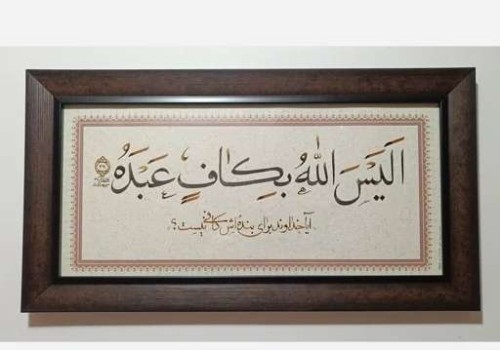 اَلَیسَ اللّٰهُ بِکافٍ عَبدَهُ
آیا خداوند برای بنده‌اش کافی نیست؟